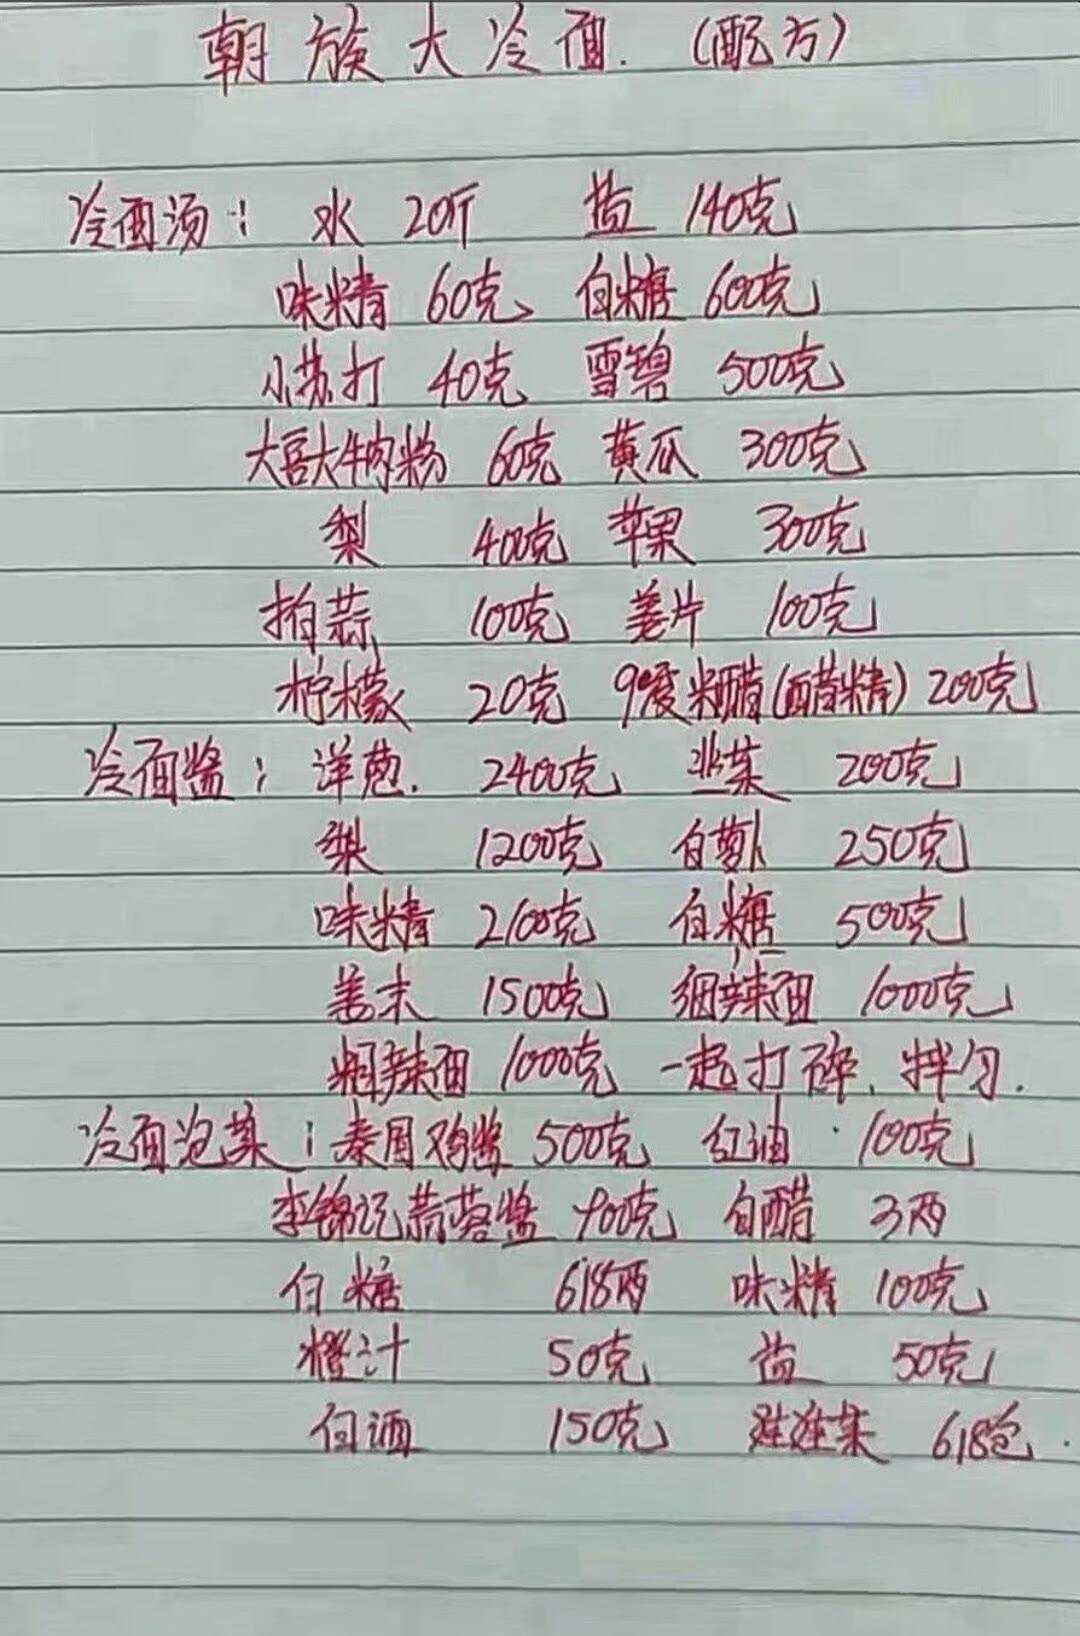 朝族大冷面.(配方)
冷面汤: 水 20斤 盐 140克
味精 60克、白糖 600克
小苏打 40克 雪碧 500克
大喜大牛肉粉 60克 黄瓜 300克
梨 400克 苹果 300克
拍蒜 100克 姜片 100克
柠檬 20克 9度米醋(醋精) 200克
冷面酱: 洋葱. 2400克 韭菜 200克
梨 1200克 白萝卜 250克
味精 2100克 白糖 500克
姜末 1500克 细辣面 1000克
粗辣面 1000克 一起打碎.拌匀.
冷面泡菜: 泰国鸡酱 500克 红油 100克
李锦记蒜蓉酱 900克 白醋 3两
白糖 618两 味精 100克
橙汁 50克 盐 50克
白酒 150克 娃娃菜 618包.